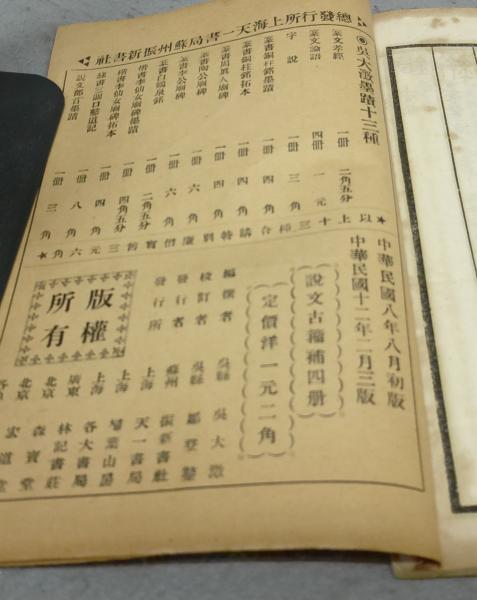 總發行所上海天一書局蘇州振新書社
吳大澂墨蹟十三種
篆文孝經 一冊 二角五分
篆文論語 四冊 一元
字說 一冊 三角
篆書銅柱銘墨蹟 一冊 四角
篆書銅柱銘拓本 一冊 四角
篆書周真人廟銘 一冊 四角
篆書陶公廟碑 一冊 六角
篆書李公廟碑 一冊 六角
篆書白鶴泉銘 一冊 二角
楷書李仙女廟碑墨蹟 一冊 二角五分
楷書李仙女廟碑拓本 一冊 四角五分
隸書三關口墾道記 一冊 四角
說文部首墨蹟 一冊 三角
以上十三種合購特別廉價實
中華民國八年八月初版
中華民國十二年二月三版
說文古籀補四冊
定價洋一元二角
編撰者 吳縣 吳大澂
校訂者 吳縣
發行者 蘇州 振新書社
發行所 上海 天一書局
上海 掃葉山房
廣東 各大書局
北京 林記書莊
北京
版權所有